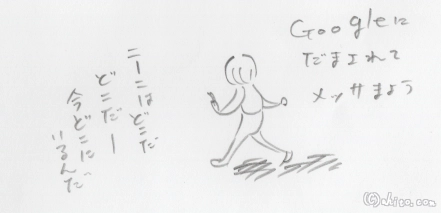 Googleに
だまされて
メッサまよう
ニーニはどこだ
どこだー
今どこに
いるんだ
(C)akiso.com